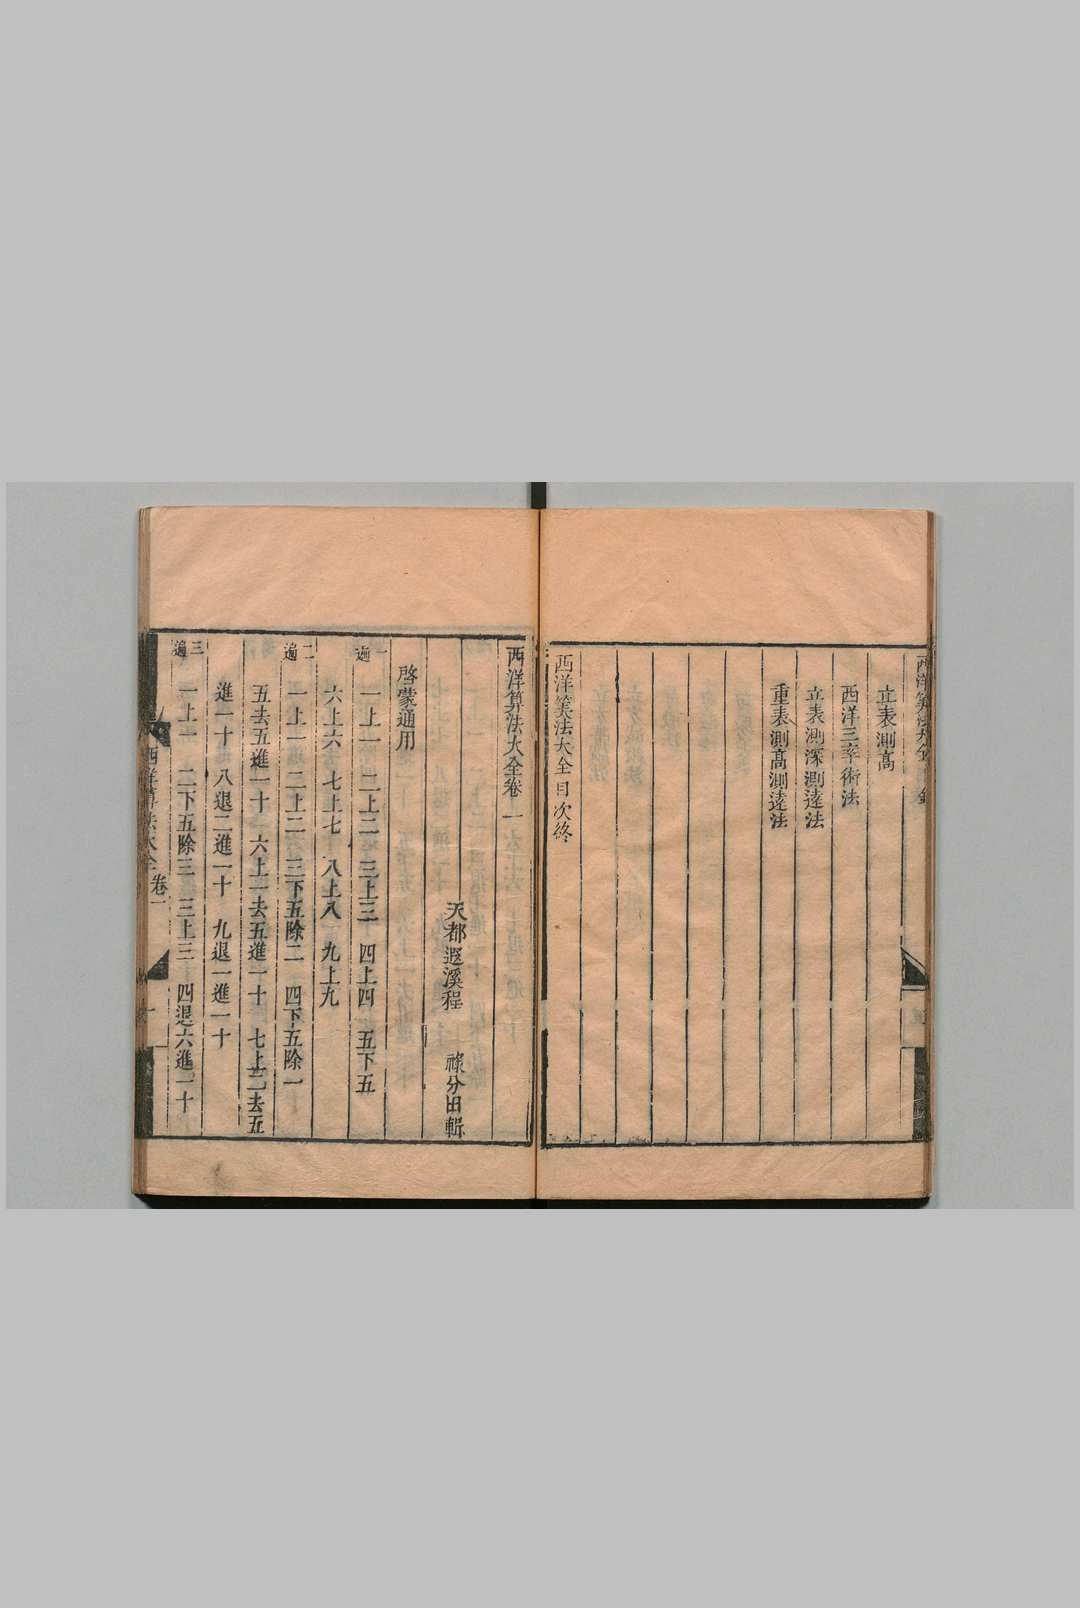 立表測高
西洋三率術法
立表測深測遠法
重表測高測遠法
西洋筭法大全目次終
西洋算法大全卷一
天都遐溪程 祿分田輯
啓蒙通用
一遍 一上一 二上二 三上三 四上四 五下五
六上六 七上七 八上八 九上九
二遍 一上一 二上二 三下五除二 四下五除一
五去五進一十 六上一去五進一十 七上二去五
進一十 八退二進一十 九退一進一十
三遍 一上一 二下五除三 三上三 四退六進一十
西洋算法大全 卷一